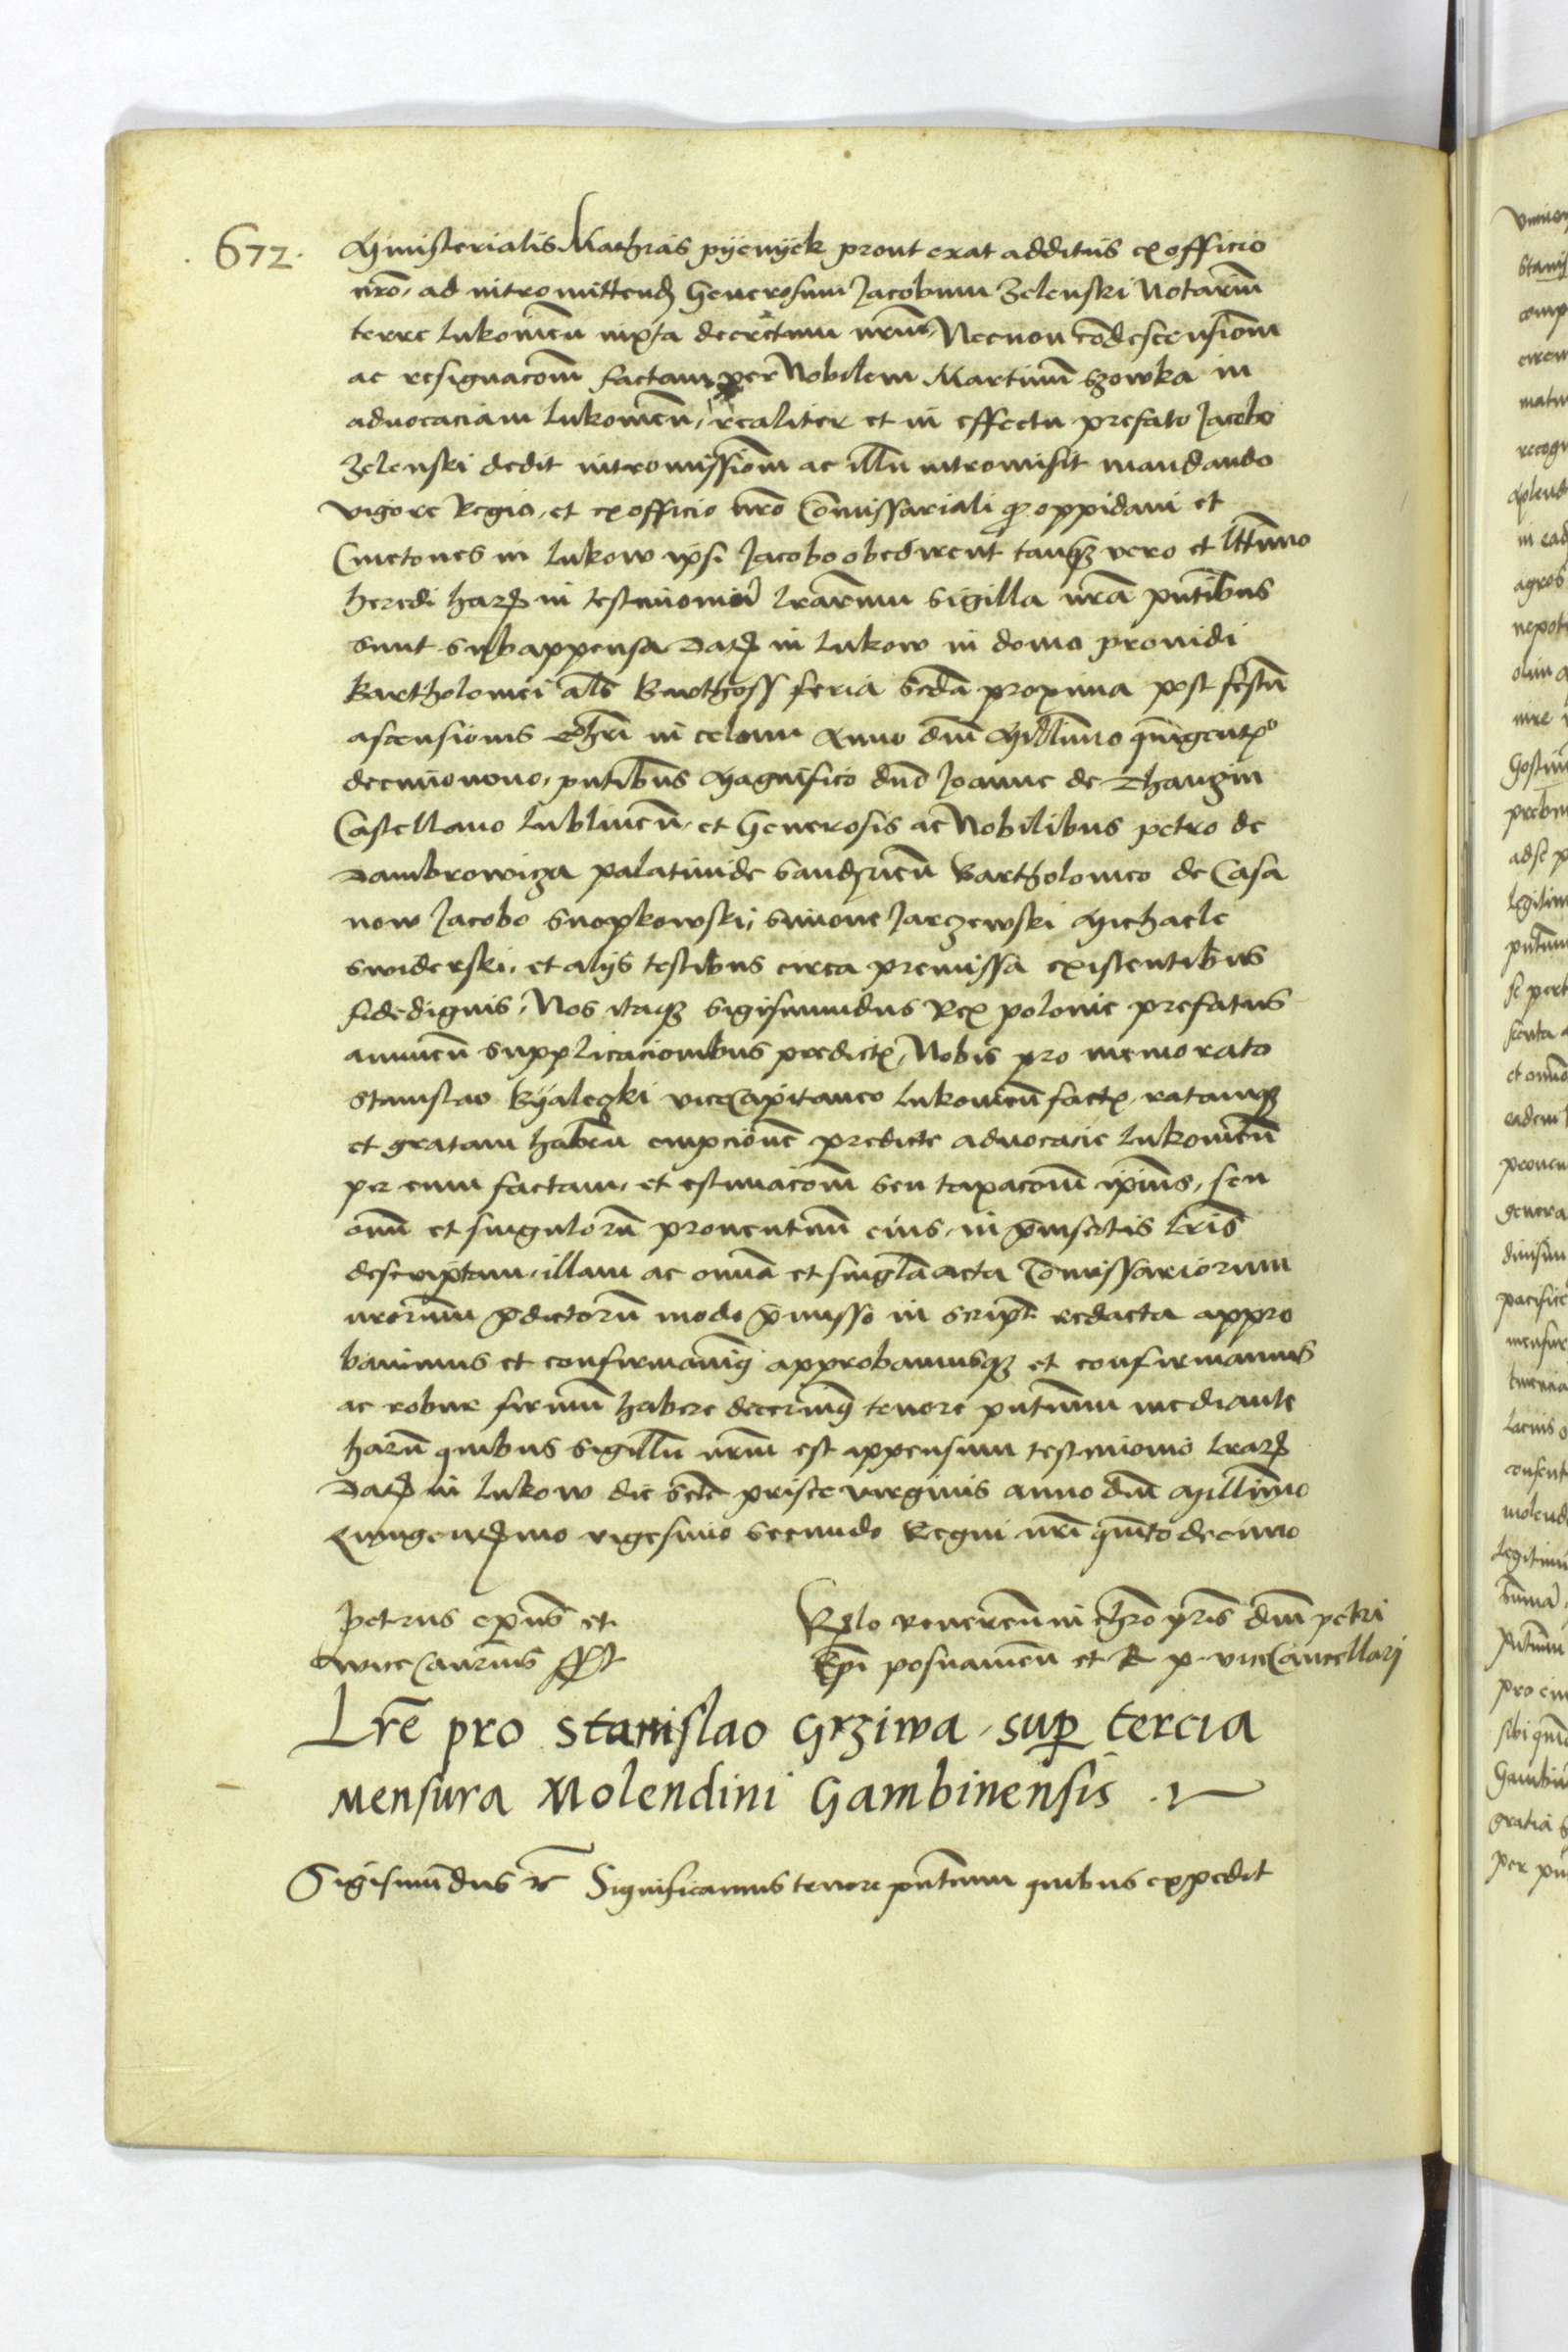 . 672 .
Ministerialis Mathias pyenyek prout erat additus ex officio
nro, ad intromittend Generosum Jacobum Zelenski Notariu
terre Lukowien iuxta decretum nrum, Necnon condescensiom
ac resignacom factam per Nobilem Martinu Szowka in
aduocaciam Lukowien, realiter et in effectu prefato Jacobo
Zelenski dedit intromissiom ac illu intromisit mandando
vigore Regio, et ex officio nro Comissariali qz oppidani et
Cmetones in Lukow ipsi Jacobo obedirent tanqz vero et lttimo
heredi harz in testimoniu lrarum sigilla nra pntibus
sunt subappensa Datz in Lukow in domo prouidi
Bartholomei als Barthoss feria scda proxima post festu
ascensionis chri in celum Anno dni Millimo quingentx
decimonono, pntibus Magnifico dno Joanne de Thanzin
Castellano Lublinen, et Generosis ac Nobilibus petro de
Dambrowiza palatinide Sandzien Bartholomeo de Casa
now Jacobo Snopkowski, Simone Jarzewski Michaele
Swiderski, et alijs testibus circa premissa existentibus
fidedignis, Nos itaqz Sigismundus Rex polonie prefatus
annuen supplicacionibus predictx, Nobis pro memorato
Stanislao Byalezki viceCapitaneo Lukowien factx, ratamqz
et gratam haben empcione predicte aduocacie Lukowien
per eum factam, et estimacom seu taxacom ipius, seu
oniu et singuloru prouentuu eius, in pinsertis lris
descriptam, illam ac omia et singla acta Comissariorum
nrorum pdictoru modo pmisso in script redacta appro
bauimus et confirmauimq approbamusqz et confirmamus
ac robur firmu habere decernimq tenore pntium mediante
haru quibus sigillu nrm est appensum testimonio lrarz
Datz in Lukow die scte prisce virginis anno dni Millimo
Quingentzmo vigesimo secundo Regni nri quintodecimo
Petrus epus et
vice Canrius sst
Relo reueren in chro pris dni petri
Epi posnanien et R p. viceCancellarj
Lre pro Stanislao Grziwa, sup tercia
Mensura Molendini Gambinensis .
Sigismudus rc Significamus tenore pntium quibus expedit